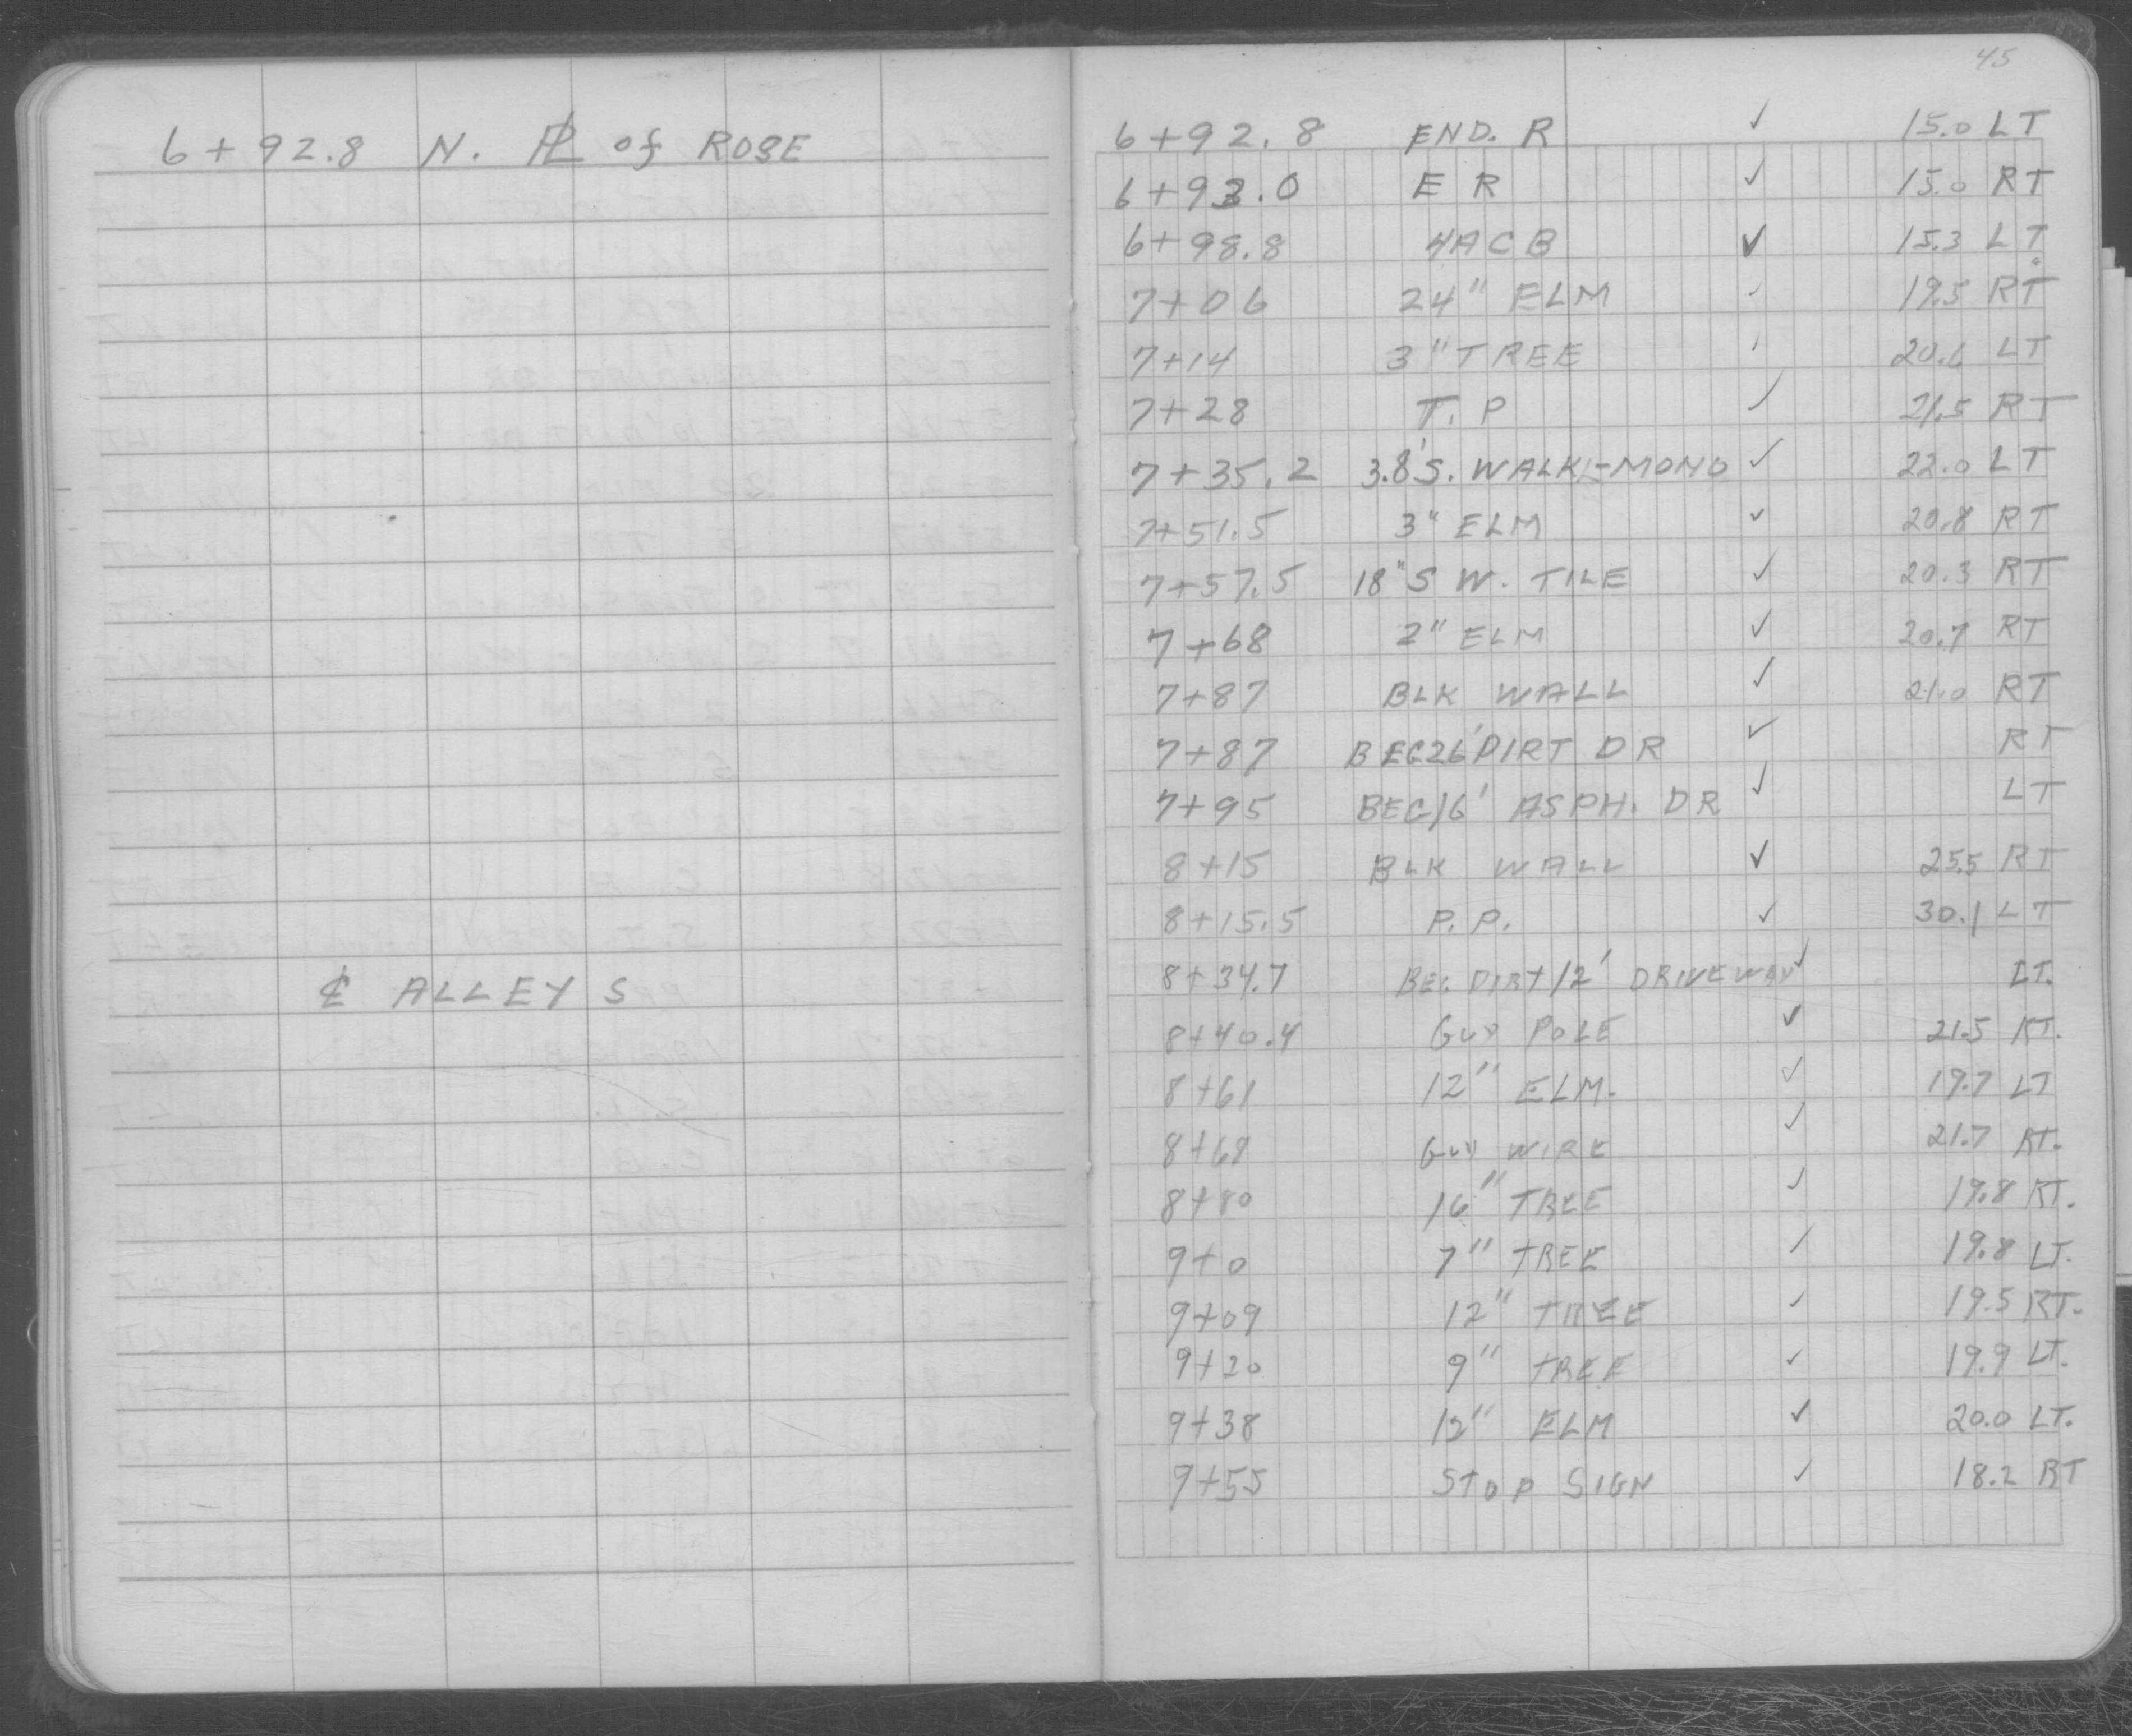 6+92.8 N. ⅊ of ROSE
℄ ALLEY S
45
6+92.8 END. R ✓ 15.0 LT
6+93.0 E R ✓ 15.0 RT
6+98.8 4ACB ✓ 15.3 LT
7+06 24" ELM ✓ 19.5 RT
7+14 3" TREE ✓ 20.6 LT
7+28 T.P ✓ 21.5 RT
7+35.2 3.8' S. WALK-MONO ✓ 22.0 LT
7+51.5 3" ELM ✓ 20.8 RT
7+57.5 18" S W. TILE ✓ 20.3 RT
7+68 2" ELM ✓ 20.7 RT
7+87 BLK WALL ✓ 21.0 RT
7+87 BEG 26' DIRT DR ✓ RT
7+95 BEG 16' ASPH. DR ✓ LT
8+15 BLK WALL ✓ 25.5 RT
8+15.5 P.P. ✓ 30.1 LT
8+34.7 BEG. DIRT 12' DRIVEWAY ✓ LT.
8+40.4 GUY POLE ✓ 21.5 RT.
8+61 12" ELM. ✓ 19.7 LT
8+68 GUY WIRE ✓ 21.7 RT.
8+80 16" TREE ✓ 19.8 RT.
9+0 7" TREE ✓ 19.8 LT.
9+09 12" TREE ✓ 19.5 RT.
9+20 9" TREE ✓ 19.9 LT.
9+38 12" ELM ✓ 20.0 LT.
9+55 STOP SIGN ✓ 18.2 RT